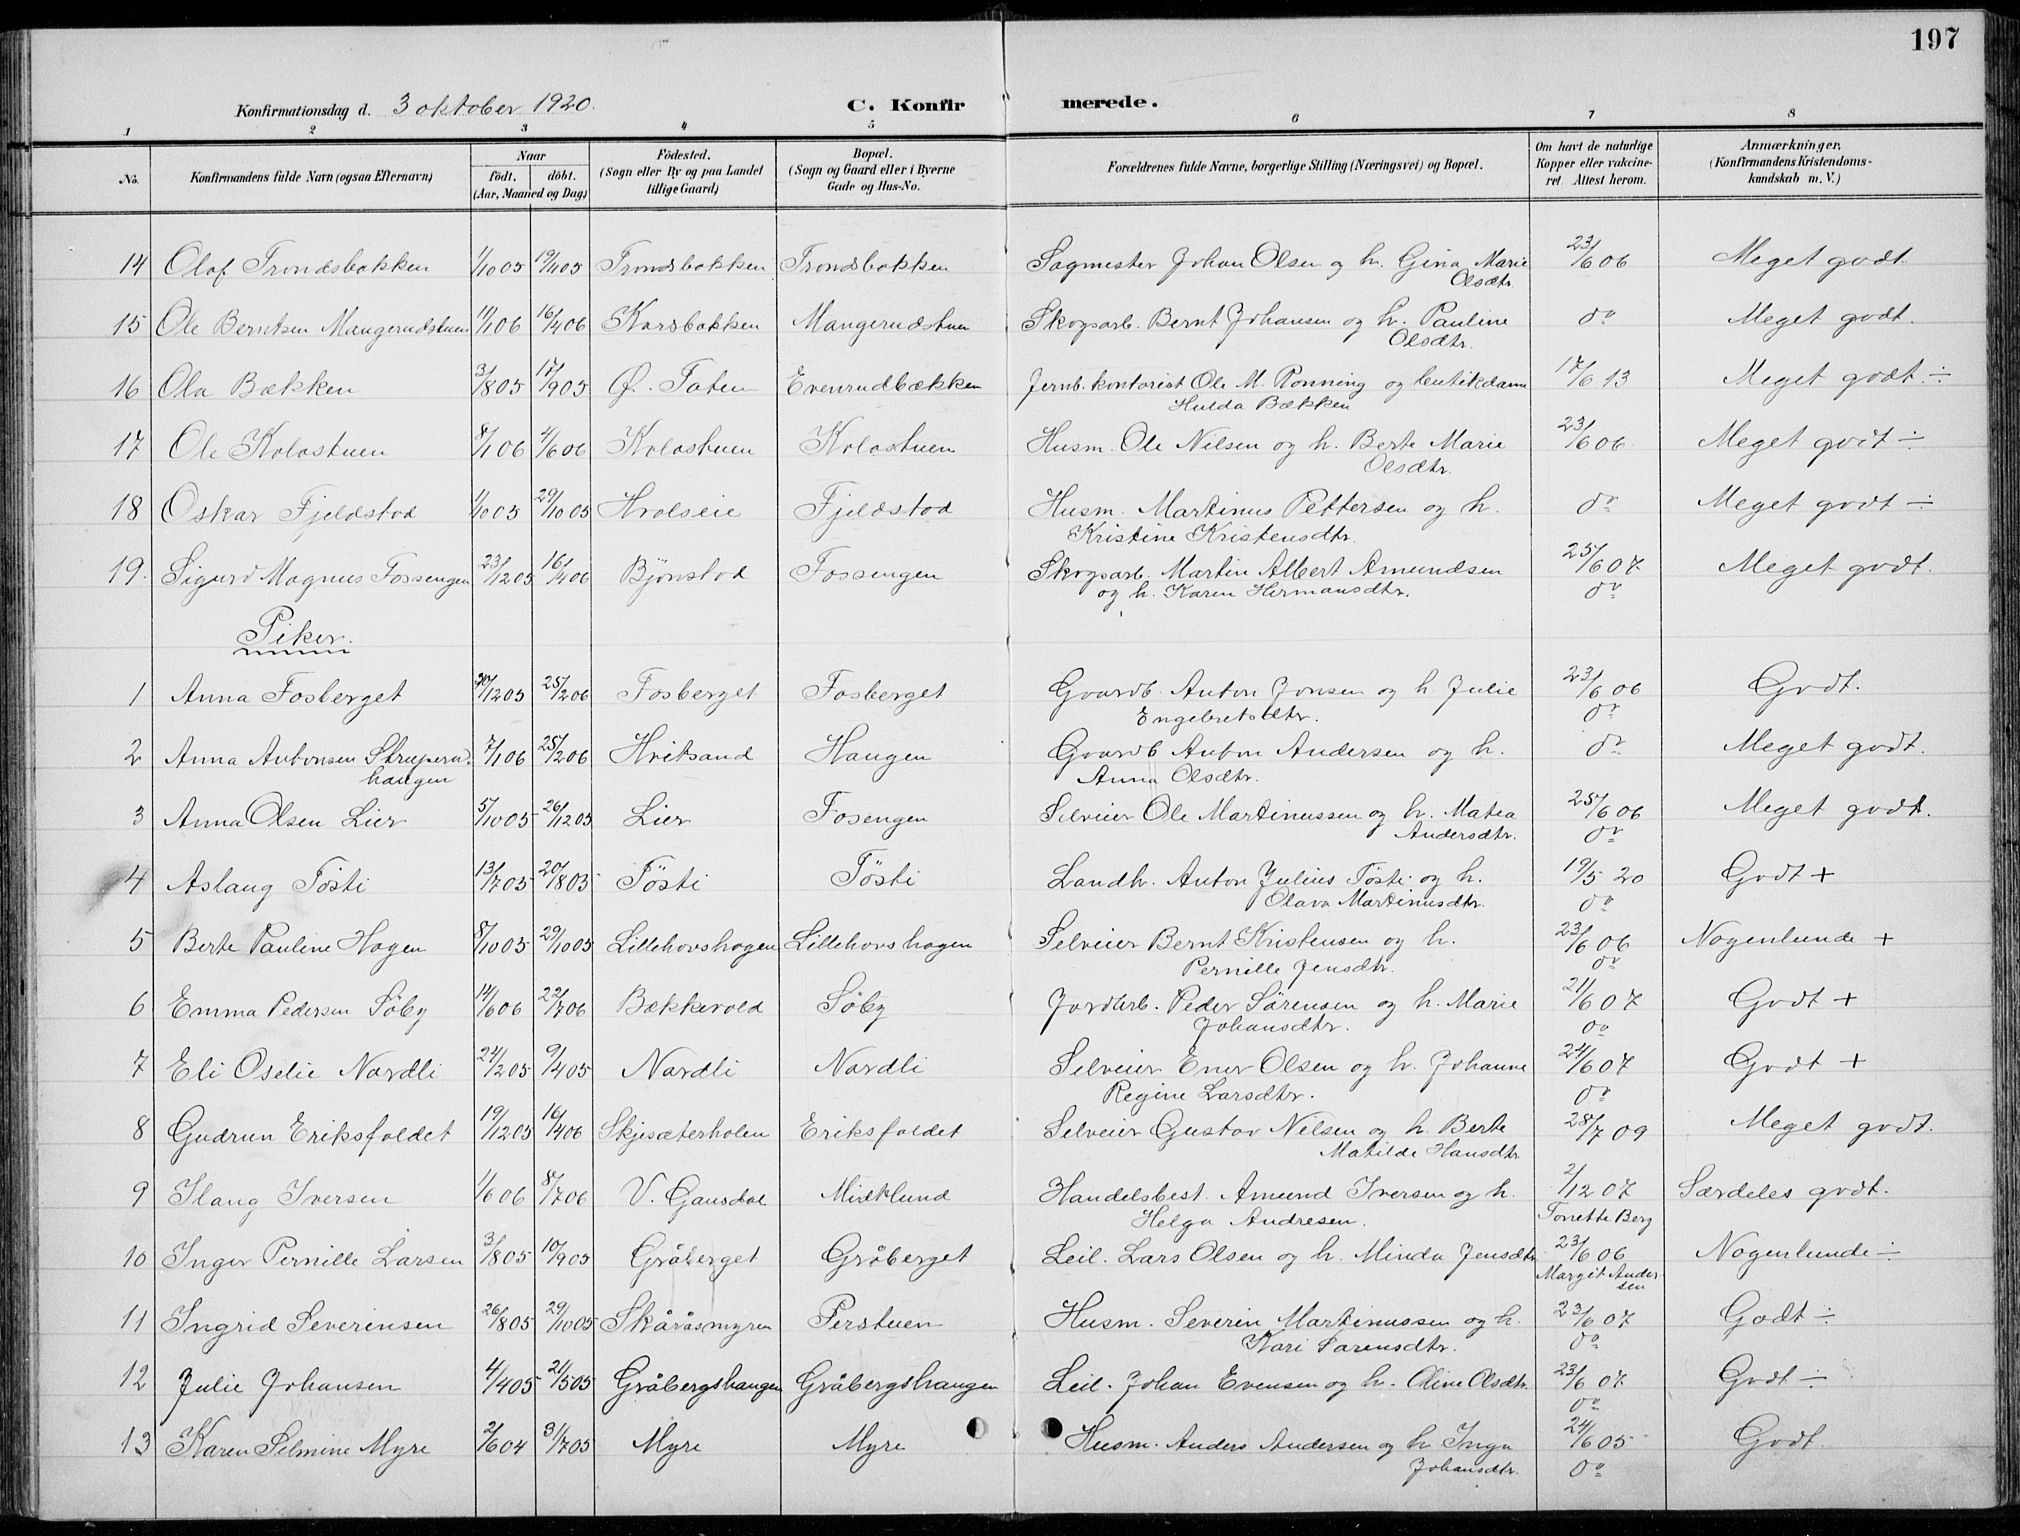 197
Konfirmationsdag d. 3 oktober 1920.
C. Konfirmerede.
1 2 3 4 5 6 7 8
No. Konfirmandens fulde Navn (ogsaa Efternavn) Naar födt. döbt. (Aar, Maaned og Dag) Födested. (Sogn eller By og paa Landet tillige Gaard) Bopæl. (Sogn og Gaard eller i Byerne Gade og Hus-No. Forældrenes fulde Navne, borgerlige Stilling (Næringsvei) og Bopæl. Om havt de naturlige Kopper eller vakcineret. Attest herom. Anmærkninger. (Konfirmandens Kristendomskundskab m. V.)
14 Olaf Trondsbakken 1/10 05 19/11 05 Trondsbakken Trondsbakken Sagmester Johan Olsen og h. Gina Marie 23/6 06 Meget godt.
Olsdtr.
15 Ole Berntsen Mangerudstuen 11/1 06 16/4 06 Korsbakken Mangerudstuen Skogsarb. Bernt Johansen og h. Pauline do Meget godt.
Olsdtr.
16 Ola Bækken 3/8 05 17/9 05 Ø. Toten Evenrudbækken Jernb. kontorist Ole M. Rønning og butikdame 17/6 13 Meget godt ÷
Hulda Bækken
17 Ole Kolostuen 8/1 06 4/6 06 Kolostuen Kolostuen Husm. Ole Nilsen og h. Berte Marie 23/6 06 Meget godt ÷
Olsdtr.
18 Oskar Fjeldstad 1/10 05 29/10 05 Hvalseie Fjeldstad Husm. Martinus Pettersen og h. do Meget godt ÷
Kristine Kristensdtr.
19. Sigurd Magnus Fossengen 23/12 05 16/4 06 Bjönstad Fossengen Skogsarb. Martin Albert Amundsen 25/6 07 Meget godt.
og h. Karen Hermansdtr. do
Piker.
1 Anna Fosberget 20/12 05 25/2 06 Fosberget Fosberget Gaardb. Anton Jonsen og h. Julie 23/6 06 Godt.
Engebretsdtr. do
2 Anna Antonsen Struperud- 7/1 06 25/2 06 Hvitsand Haugen Gaardb Anton Andersen og h. do Meget godt.
haugen Anna Olsdtr.
3 Anna Olsen Lier 5/10 05 26/12 05 Lier Fosengen Selveier Ole Martinussen og h. Matea 25/6 06 Meget godt.
Andersdtr. do
4 Aslaug Tösti 13/7 05 20/8 05 Tösti Tösti Landh. Anton Julius Tösti og h. 19/5 20 Godt +
Olava Martinusdtr. do
5 Berte Pauline Hagen 8/10 05 29/10 05 Lillehovshagen Lillehovshagen Selveier Bernt Kristensen og h. 23/6 06 Nogenlunde +
Pernille Jensdtr. do
6 Emma Pedersen Söby 14/6 06 22/7 06 Bækkevold Söby Jordarb. Peder Sörensen og h. Marie 21/6 07 Godt +
Johansdtr. do
7 Eli Oselie Nordli 24/2 05 9/4 05 Nordli Nordli Selveier Ener Olsen og h. Johanne 24/6 07 Godt +
Regine Larsdtr. do
8 Gudrun Eriksfaldet 19/12 05 16/4 06 Skjesæterholen Eriksfaldet Selveier Gustav Nilsen og h. Berte 28/7 09 Meget godt.
Matilde Hansdtr.
9 Ilang Iversen 1/6 06 8/7 06 V. Gausdal Midtlund Handelsbest. Amund Iversen og h. 2/12 07 Særdeles godt.
Helga Andresen. Tonette Berg
10 Inger Pernille Larsen 3/8 05 10/9 05 Gråberget Gråberget Leil. Lars Olsen og h. Minda Jensdtr 23/6 06 Nogenlunde ÷
Margit Andersen
11 Ingrid Severinsen 26/8 05 29/10 05 Skåråsmyren Perstuen Husm. Severin Martinussen og h. 23/6 07 Godt ÷
Kari Larensdtr. do
12 Julie Johansen 4/4 05 21/5 05 Gråbergshaugen Gråbergshaugen Leil. Johan Evensen og h. Oline Olsdtr. 23/6 07 Godt ÷
do
13 Karen Selmine Myre 2/6 04 3/7 05 Myre Myre Husm. Anders Andersen og h Inga 24/6 05 Godt.
Johansdtr. do